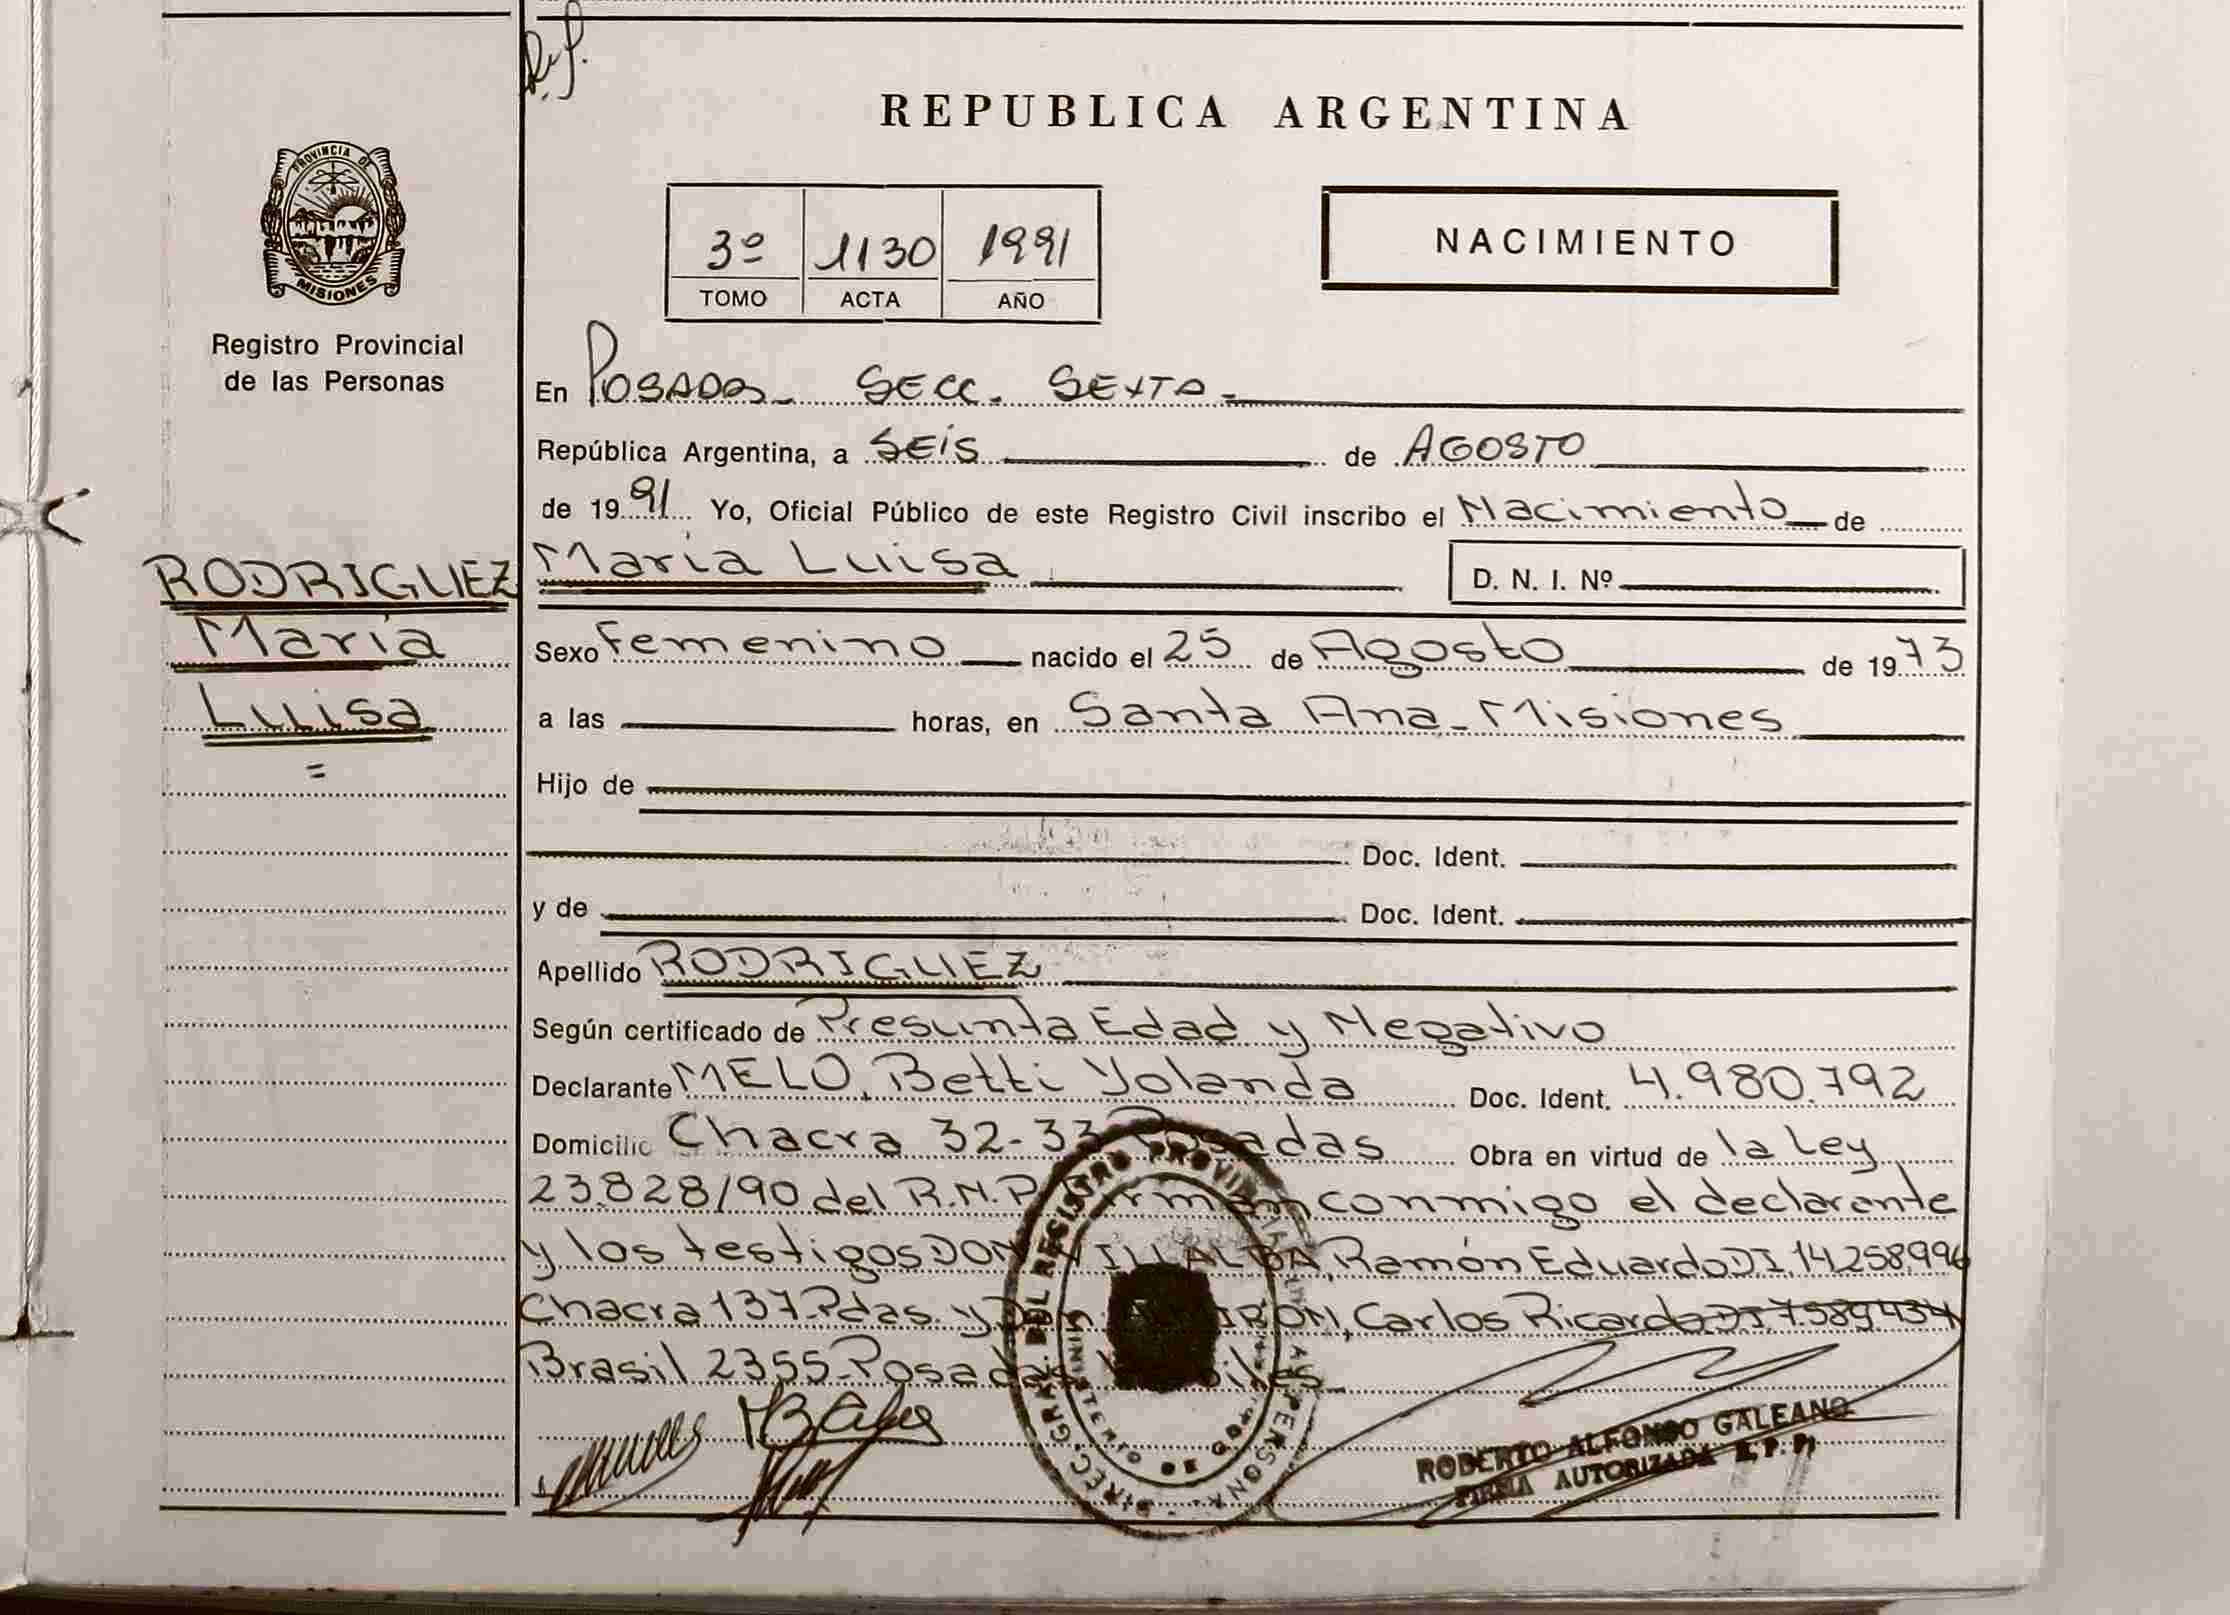 REPUBLICA ARGENTINA
PROVINCIA DE
MISIONES
Registro Provincial
de las Personas
3º 1130 1991
TOMO ACTA AÑO
NACIMIENTO
En POSADAS - SECC. SEXTA -
República Argentina, a SEIS de AGOSTO
de 1991 Yo, Oficial Público de este Registro Civil inscribo el Nacimiento de
RODRIGUEZ
María
Luisa
=
María Luisa D. N. I. Nº
Sexo femenino nacido el 25 de Agosto de 1973
a las horas, en Santa Ana - Misiones
Hijo de
Doc. Ident.
y de Doc. Ident.
Apellido RODRIGUEZ
Según certificado de Presunta Edad y Negativo
Declarante MELO, Betti Yolanda Doc. Ident. 4.980.792
Domicilio Chacra 32-33 Posadas Obra en virtud de la Ley
23.828/90 del R.N.P. conmigo el declarante
y los testigos DON VILLALBA, Ramón Eduardo DI. 14.258.996
Chacra 137 Pdas. y Carlos Ricardo DI 7.589.434
Brasil 2355 - Posadas
DIREC. GRAL. DEL REGISTRO PROVINCIAL PERSONA
ROBERTO ALFONSO GALEANO
FIRMA AUTORIZADA R. P. P.